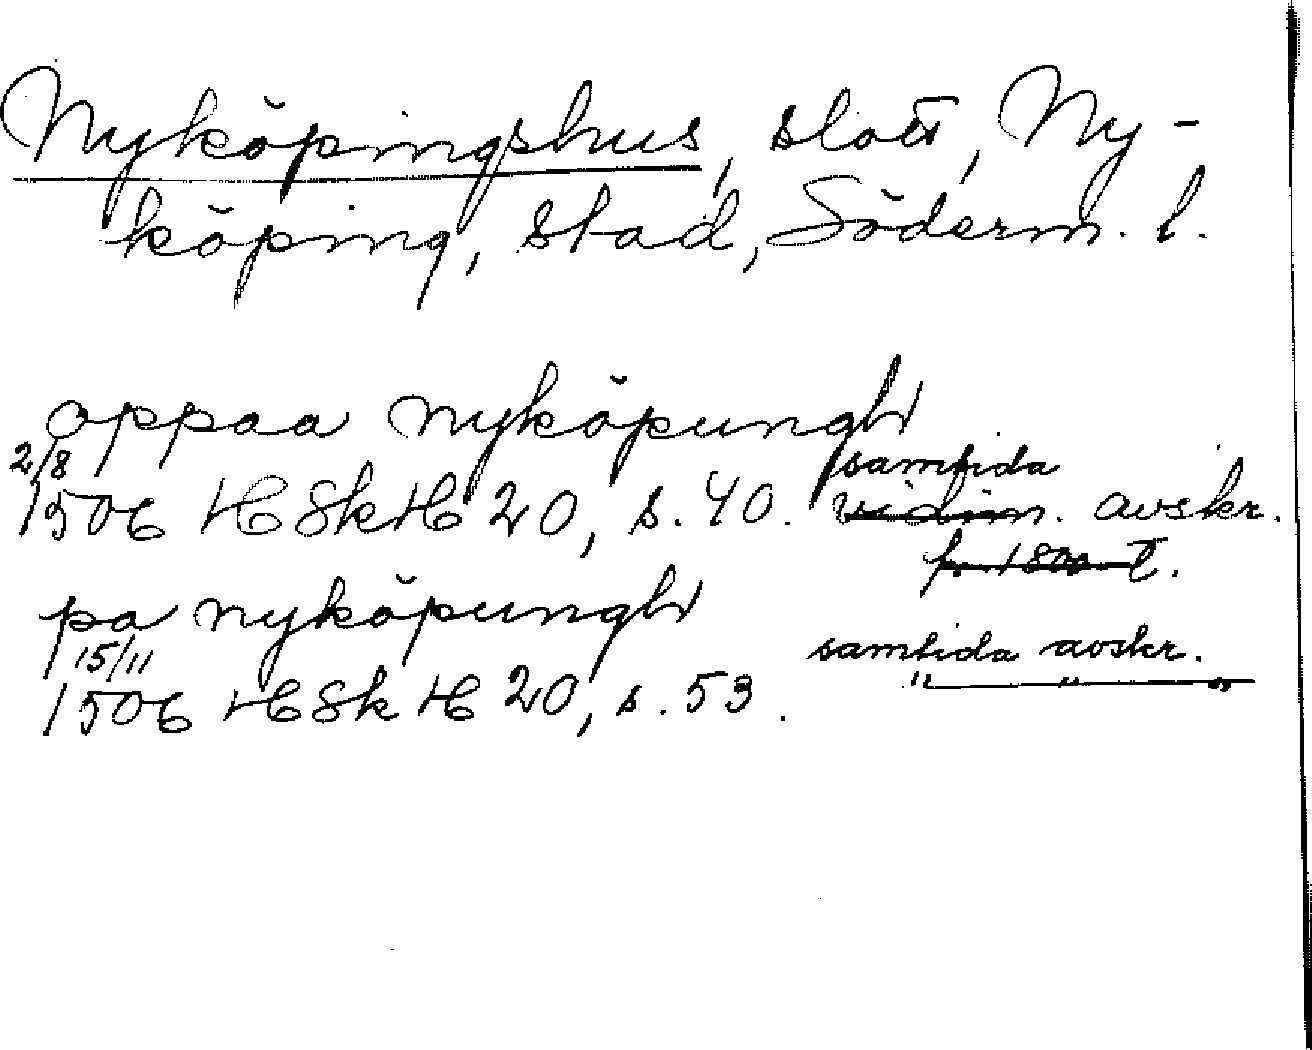 Nyköpingshus, slott, Ny-
köping, stad, Söderm. l.
oppaa nyköpungh
2/8 samtida
1506 HSkH 20, s. 40. vidim. avskr.
fr. 1800-t.
pa nyköpungh
15/11 samtida avskr.
1506 HSkH 20, s. 53. " " "